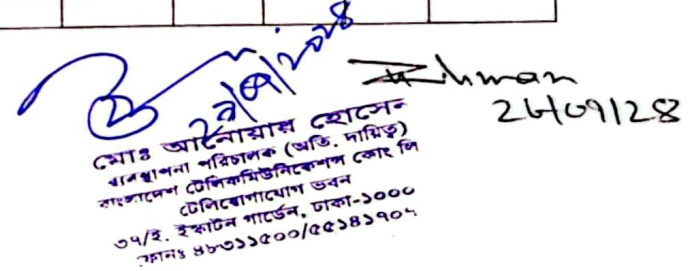 ২৯/০৯/২০২৪
Rihman
26/09/24
মোঃ আনোয়ার হোসেন
ব্যবস্থাপনা পরিচালক (অতি. দায়িত্ব)
বাংলাদেশ টেলিকমিউনিকেশন্স কোং লি
টেলিযোগাযোগ ভবন
৩৭/ই, ইস্কাটন গার্ডেন, ঢাকা-১০০০
ফোনঃ ৪৮৩১১৫০০/৫৫১৪১৭০৭